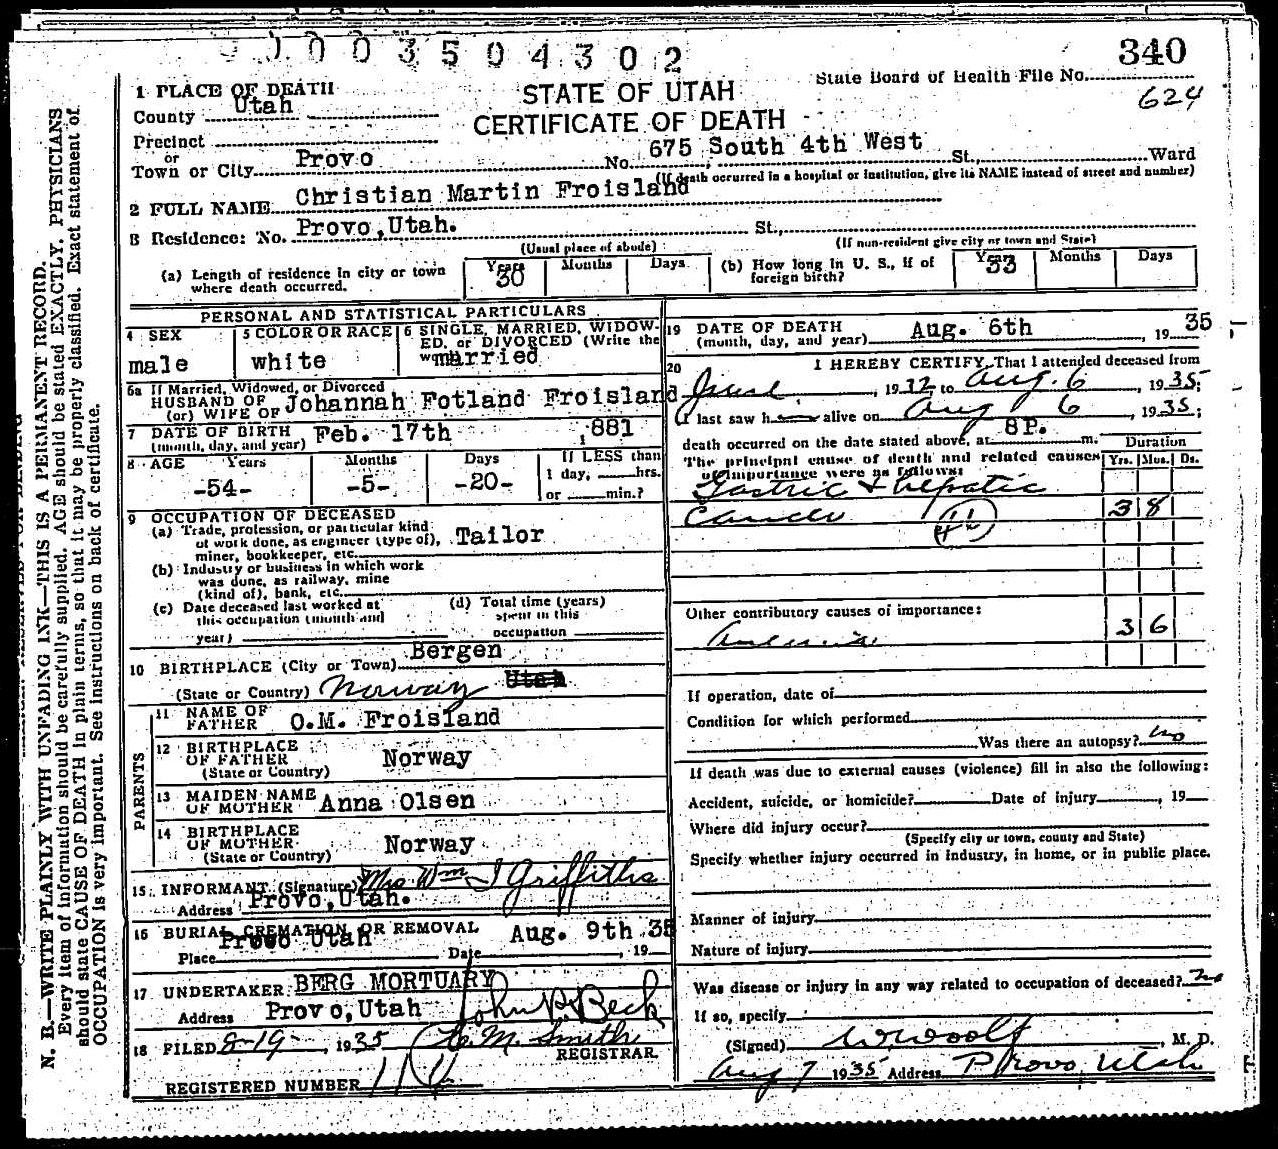 1003504302
340
State Board of Health File No.
624
1 PLACE OF DEATH
County Utah
STATE OF UTAH
CERTIFICATE OF DEATH
Precinct
or
Town or City Provo No. 675 South 4th West St., Ward
(If death occurred in a hospital or institution, give its NAME instead of street and number)
2 FULL NAME Christian Martin Froisland
3 Residence: No. Provo, Utah. St.,
(Usual place of abode) (If non-resident give city or town and State)
(a) Length of residence in city or town where death occurred. Years 30 Months Days
(b) How long in U. S., if of foreign birth? Years 33 Months Days
PERSONAL AND STATISTICAL PARTICULARS
4 SEX male
5 COLOR OR RACE white
6 SINGLE, MARRIED, WIDOWED, or DIVORCED (Write the word) married
6a If Married, Widowed, or Divorced
HUSBAND OF
(or) WIFE OF Johannah Fotland Froisland
7 DATE OF BIRTH (month, day, and year) Feb. 17th 1881
8 AGE Years -54- Months -5- Days -20-
If LESS than
1 day, hrs.
or min.?
9 OCCUPATION OF DECEASED
(a) Trade, profession, or particular kind
of work done, as engineer (type of), Tailor
miner, bookkeeper, etc.
(b) Industry or business in which work
was done, as railway, mine
(kind of), bank, etc.
(c) Date deceased last worked at
this occupation (month and
year)
(d) Total time (years)
spent in this
occupation
10 BIRTHPLACE (City or Town) Bergen
(State or Country) Norway Utah
PARENTS
11 NAME OF FATHER O.M. Froisland
12 BIRTHPLACE OF FATHER (State or Country) Norway
13 MAIDEN NAME OF MOTHER Anna Olsen
14 BIRTHPLACE OF MOTHER (State or Country) Norway
15 INFORMANT (Signature) Mrs Wm J Griffiths
Address Provo, Utah.
16 BURIAL, CREMATION OR REMOVAL
Place Provo Utah Date Aug. 9th 35, 19
17 UNDERTAKER BERG MORTUARY
Address Provo, Utah John P. Beck
18 FILED 8-19-, 1935 M. Smith
REGISTRAR.
REGISTERED NUMBER 114
19 DATE OF DEATH (month, day, and year) Aug. 6th, 1935
20 I HEREBY CERTIFY, That I attended deceased from
1932, to Aug. 6, 1935;
I last saw h alive on Aug 6, 1935;
death occurred on the date stated above, at 8P. m.
The principal cause of death and related causes
of importance were as follows:
Duration
Yrs. Mos. Ds.
Gastric & hepatic
Cancer 3 8
Other contributory causes of importance:
3 6
If operation, date of
Condition for which performed
Was there an autopsy? no
If death was due to external causes (violence) fill in also the following:
Accident, suicide, or homicide? Date of injury, 19
Where did injury occur?
(Specify city or town, county and State)
Specify whether injury occurred in industry, in home, or in public place.
Manner of injury
Nature of injury
Was disease or injury in any way related to occupation of deceased? no
If so, specify
(Signed) W Woolf, M. D.
Aug 7 1935 Address Provo Utah
N. B.—WRITE PLAINLY WITH UNFADING INK—THIS IS A PERMANENT RECORD.
Every item of information should be carefully supplied. AGE should be stated EXACTLY. PHYSICIANS
should state CAUSE OF DEATH in plain terms, so that it may be properly classified. Exact statement of
OCCUPATION is very important. See instructions on back of certificate.